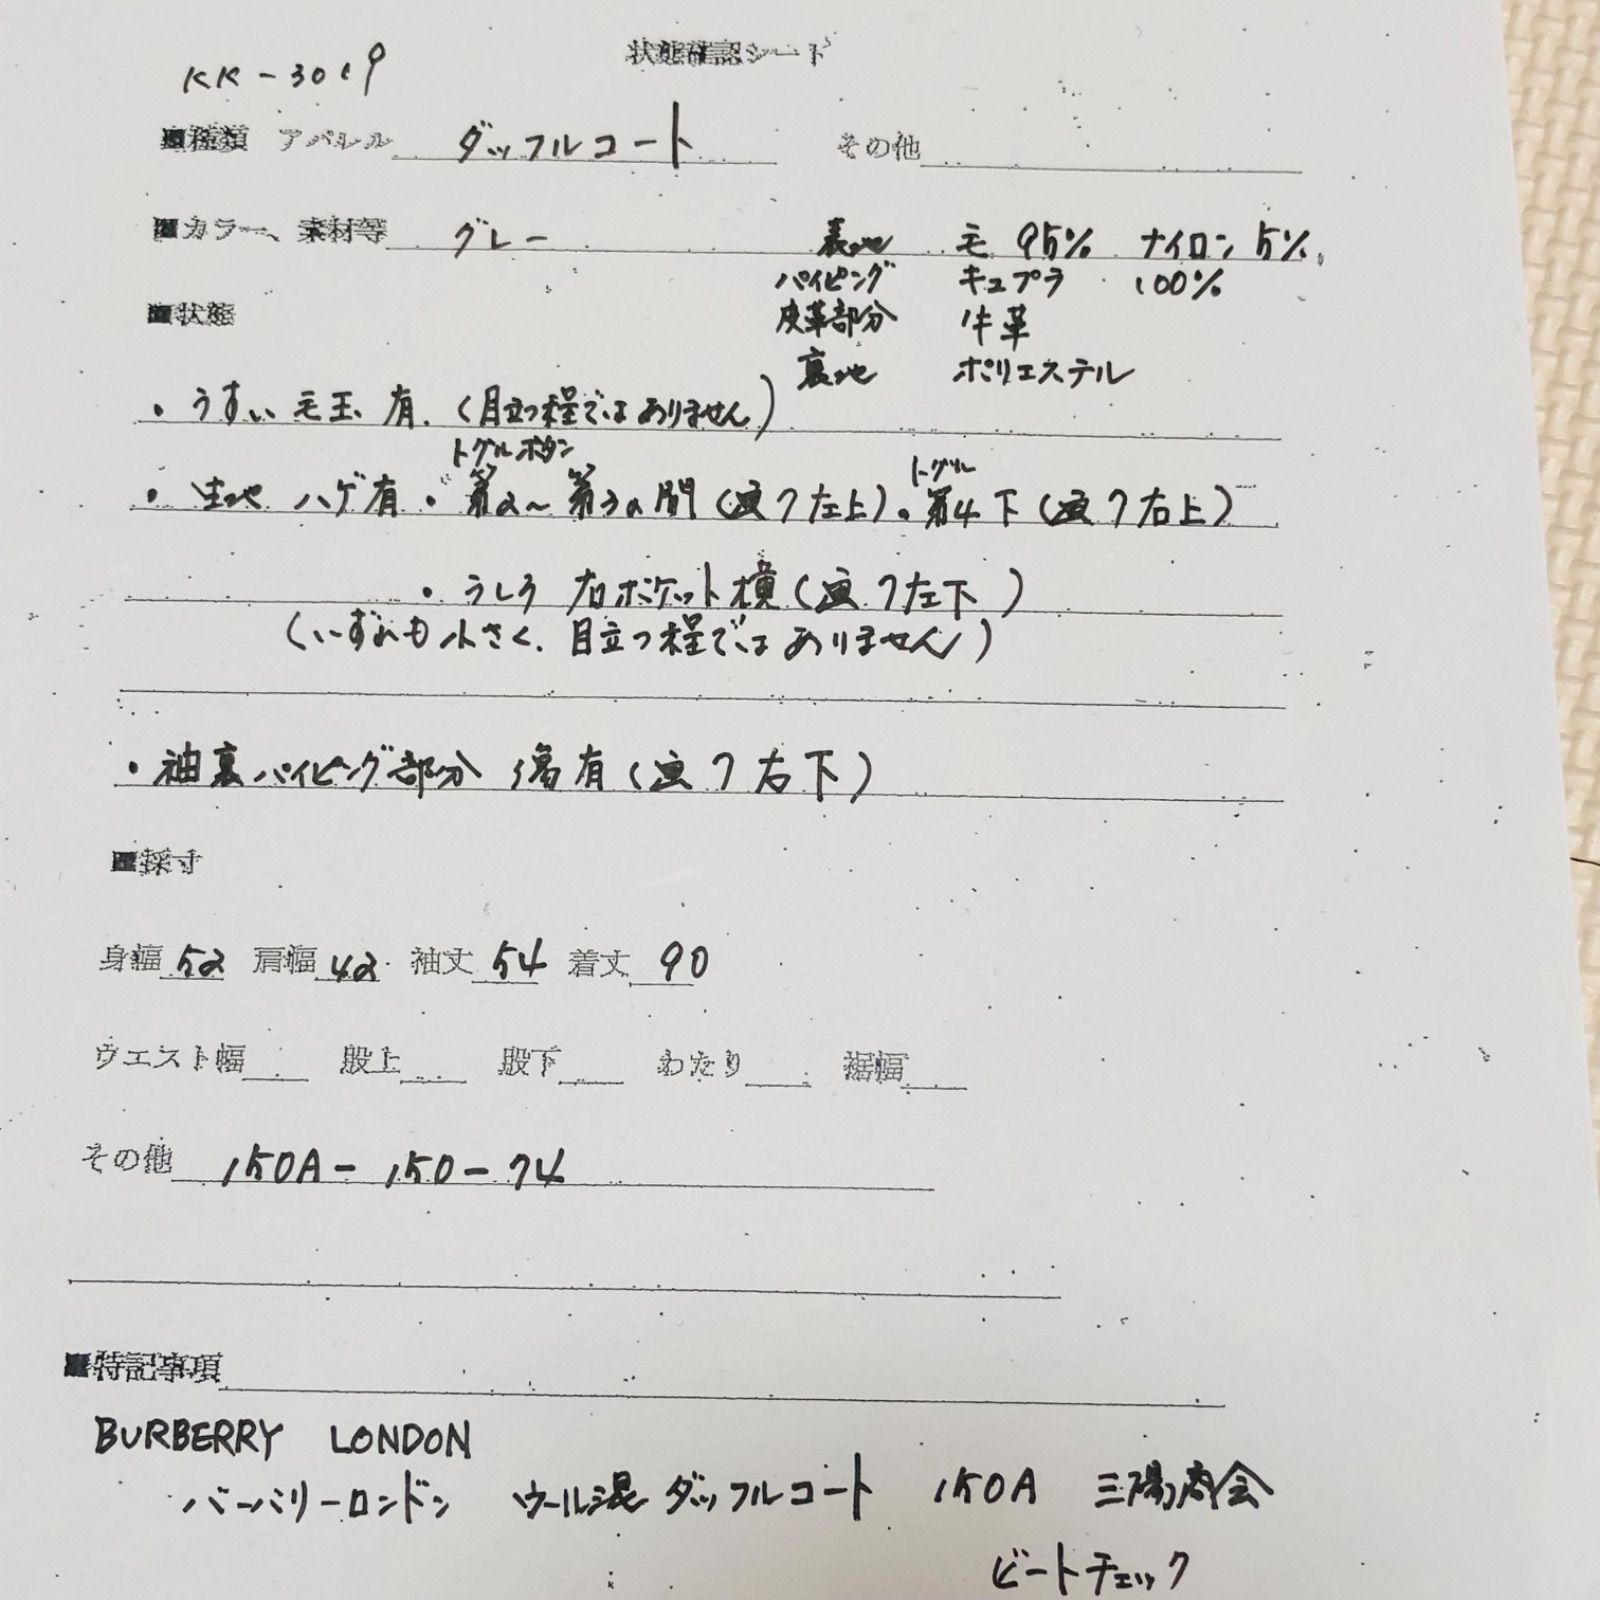 状態確認シート
KK-3019
■種類 アパレル ダッフルコート その他
■カラー、素材等 グレー 表地 毛 95% ナイロン 5%
パイピング キュプラ 100%
■状態 皮革部分 牛革
裏地 ポリエステル
・うすい毛玉有.(目立つ程ではありません)
トグルボタン トグル
・生地 ハゲ有・第2〜第3の間(画7左上)・第4下(画7右上)
・うしろ 右ポケット横(画7左下)
(いずれも小さく、目立つ程ではありません)
・袖裏パイピング部分 傷有(画7右下)
■採寸
身幅 52 肩幅 42 袖丈 54 着丈 90
ウエスト幅 股上 股下 わたり 裾幅
その他 150A-150-74
■特記事項
BURBERRY LONDON
バーバリーロンドン ウール混 ダッフルコート 150A 三陽商会
ビートチェック